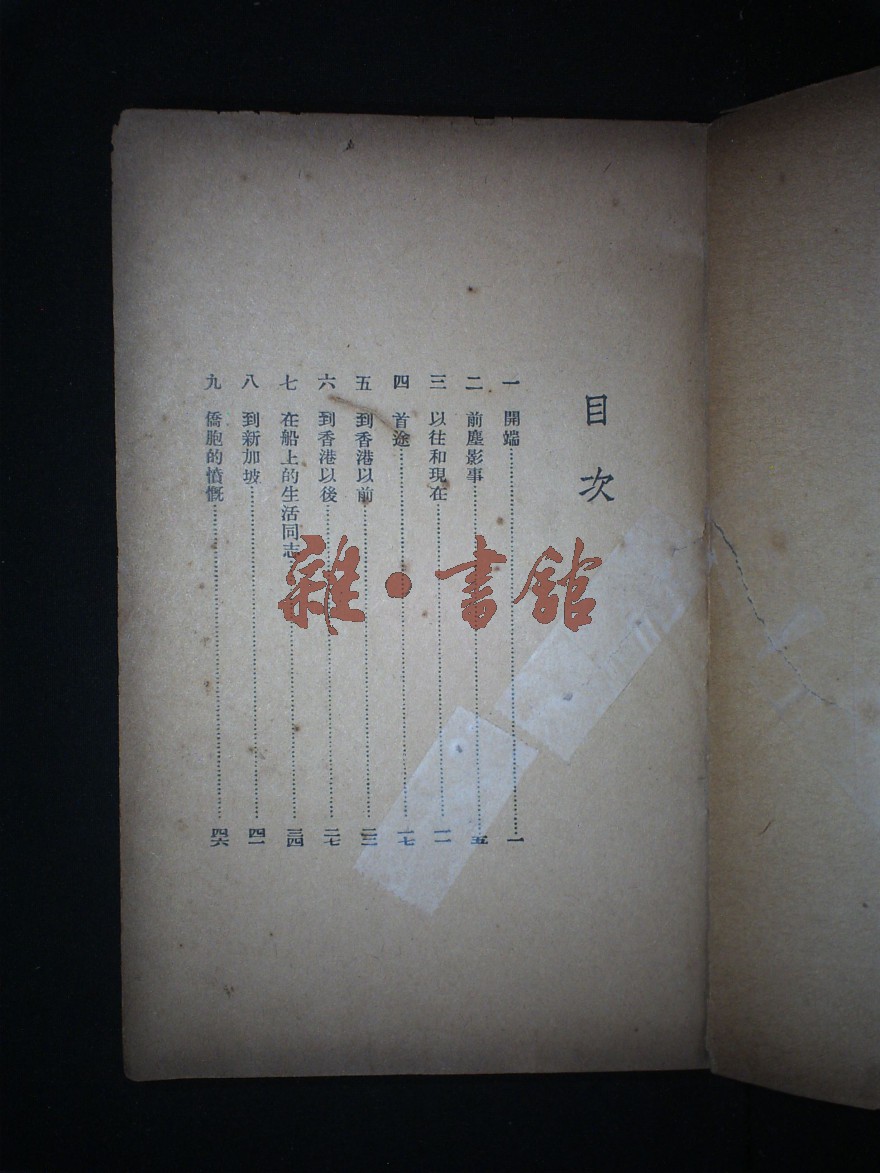 目次
一 開端……一
二 前塵影事……五
三 以往和現在……一一
四 首途……一七
五 到香港以前……二三
六 到香港以後……二七
七 在船上的生活同志……三四
八 到新加坡……四一
九 僑胞的憤慨……四六
雜·書舘